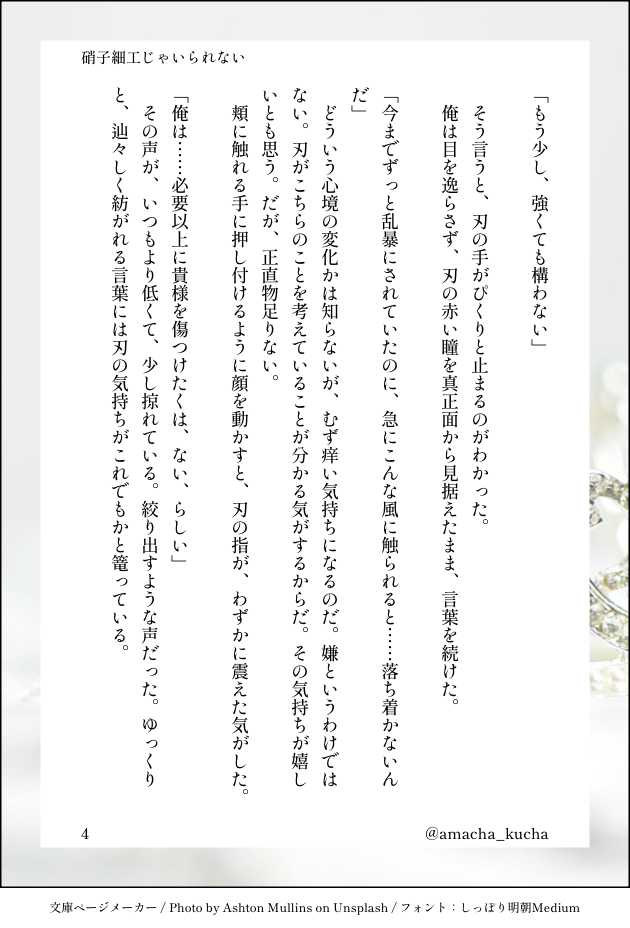 硝子細工じゃいられない
「もう少し、強くても構わない」
そう言うと、刃の手がぴくりと止まるのがわかった。
俺は目を逸らさず、刃の赤い瞳を真正面から見据えたまま、言葉を続けた。
「今までずっと乱暴にされていたのに、急にこんな風に触られると……落ち着かないん
だ」
どういう心境の変化かは知らないが、むず痒い気持ちになるのだ。嫌というわけでは
ない。刃がこちらのことを考えていることが分かる気がするからだ。その気持ちが嬉し
いとも思う。だが、正直物足りない。
頬に触れる手に押し付けるように顔を動かすと、刃の指が、わずかに震えた気がした。
「俺は……必要以上に貴様を傷つけたくは、ない、らしい」
その声が、いつもより低くて、少し掠れている。絞り出すような声だった。ゆっくり
と、辿々しく紡がれる言葉には刃の気持ちがこれでもかと篭っている。
4
@amacha_kucha
文庫ページメーカー / Photo by Ashton Mullins on Unsplash / フォント：しっぽり明朝Medium